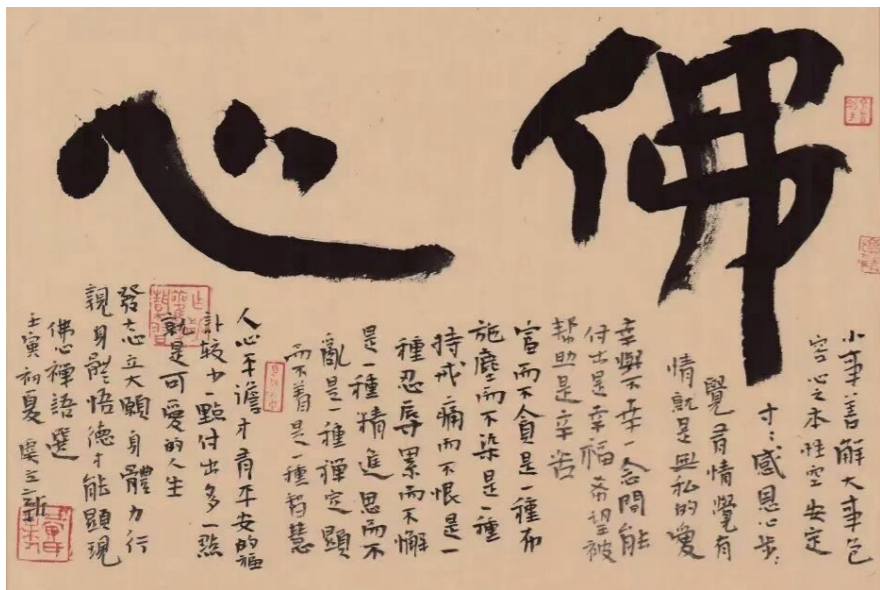 佛心
小事善解大事包
容心之本性空安定
寸:感恩心步:
覺有情覺有
情就是無私的愛
幸與不幸一念間能
付出是幸福希望被
幫助是辛苦
富而不貪是一種布
施塵而不染是一種
持戒痛而不恨是一
種忍辱累而不懈
是一種精進思而不
亂是一種禪定顯
而不着是一種智慧
人心平澹才有平安的福
計較少一點付出多一點
就是可愛的人生
發志立大願身體力行
親身體悟德才能顯現
佛心禪語選
壬寅初夏 立新